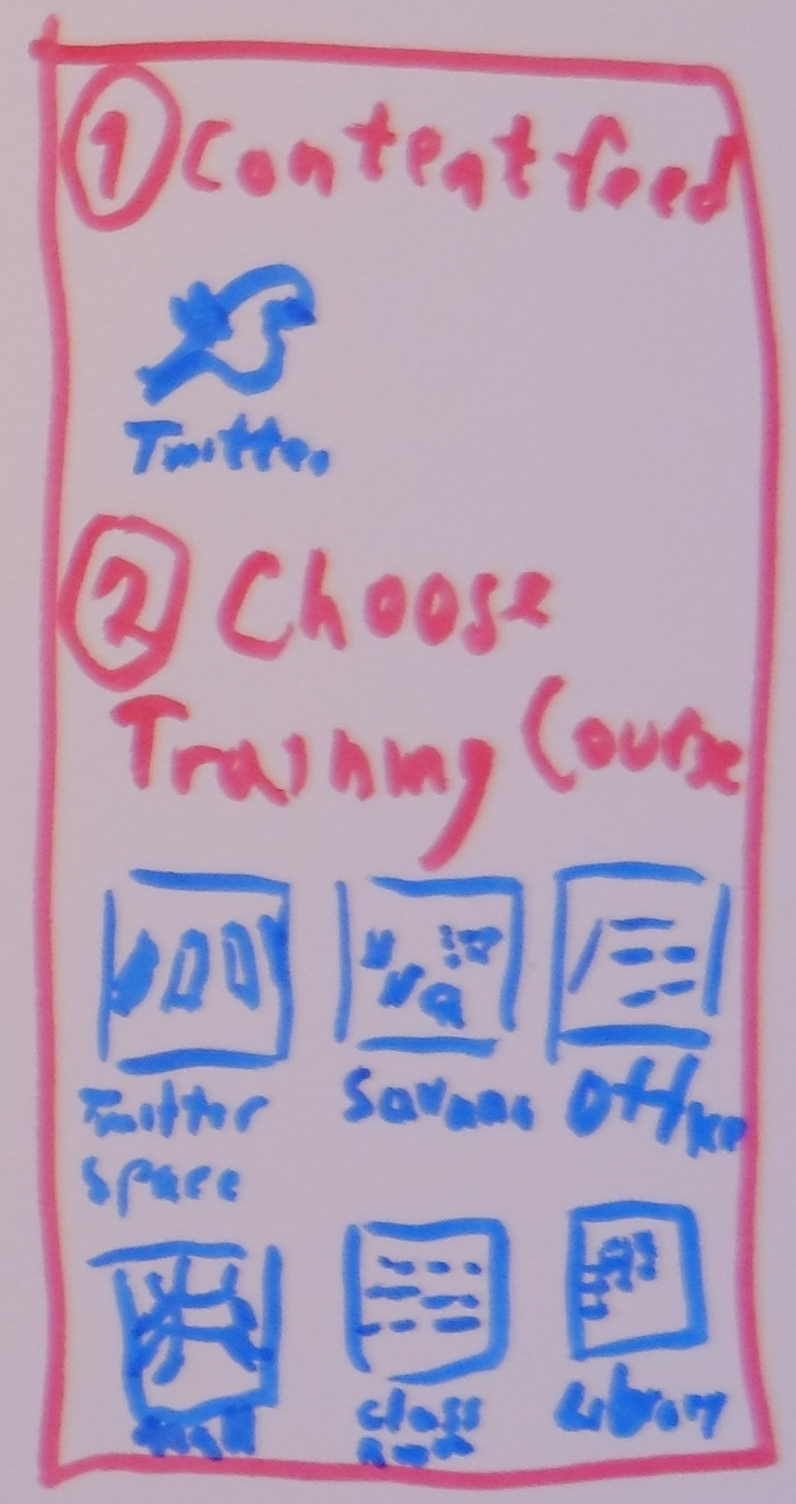 1 Content feed
Twitter
2 Choose
Training Course
Twitter Space
Savanna
Office
Class Room
Library